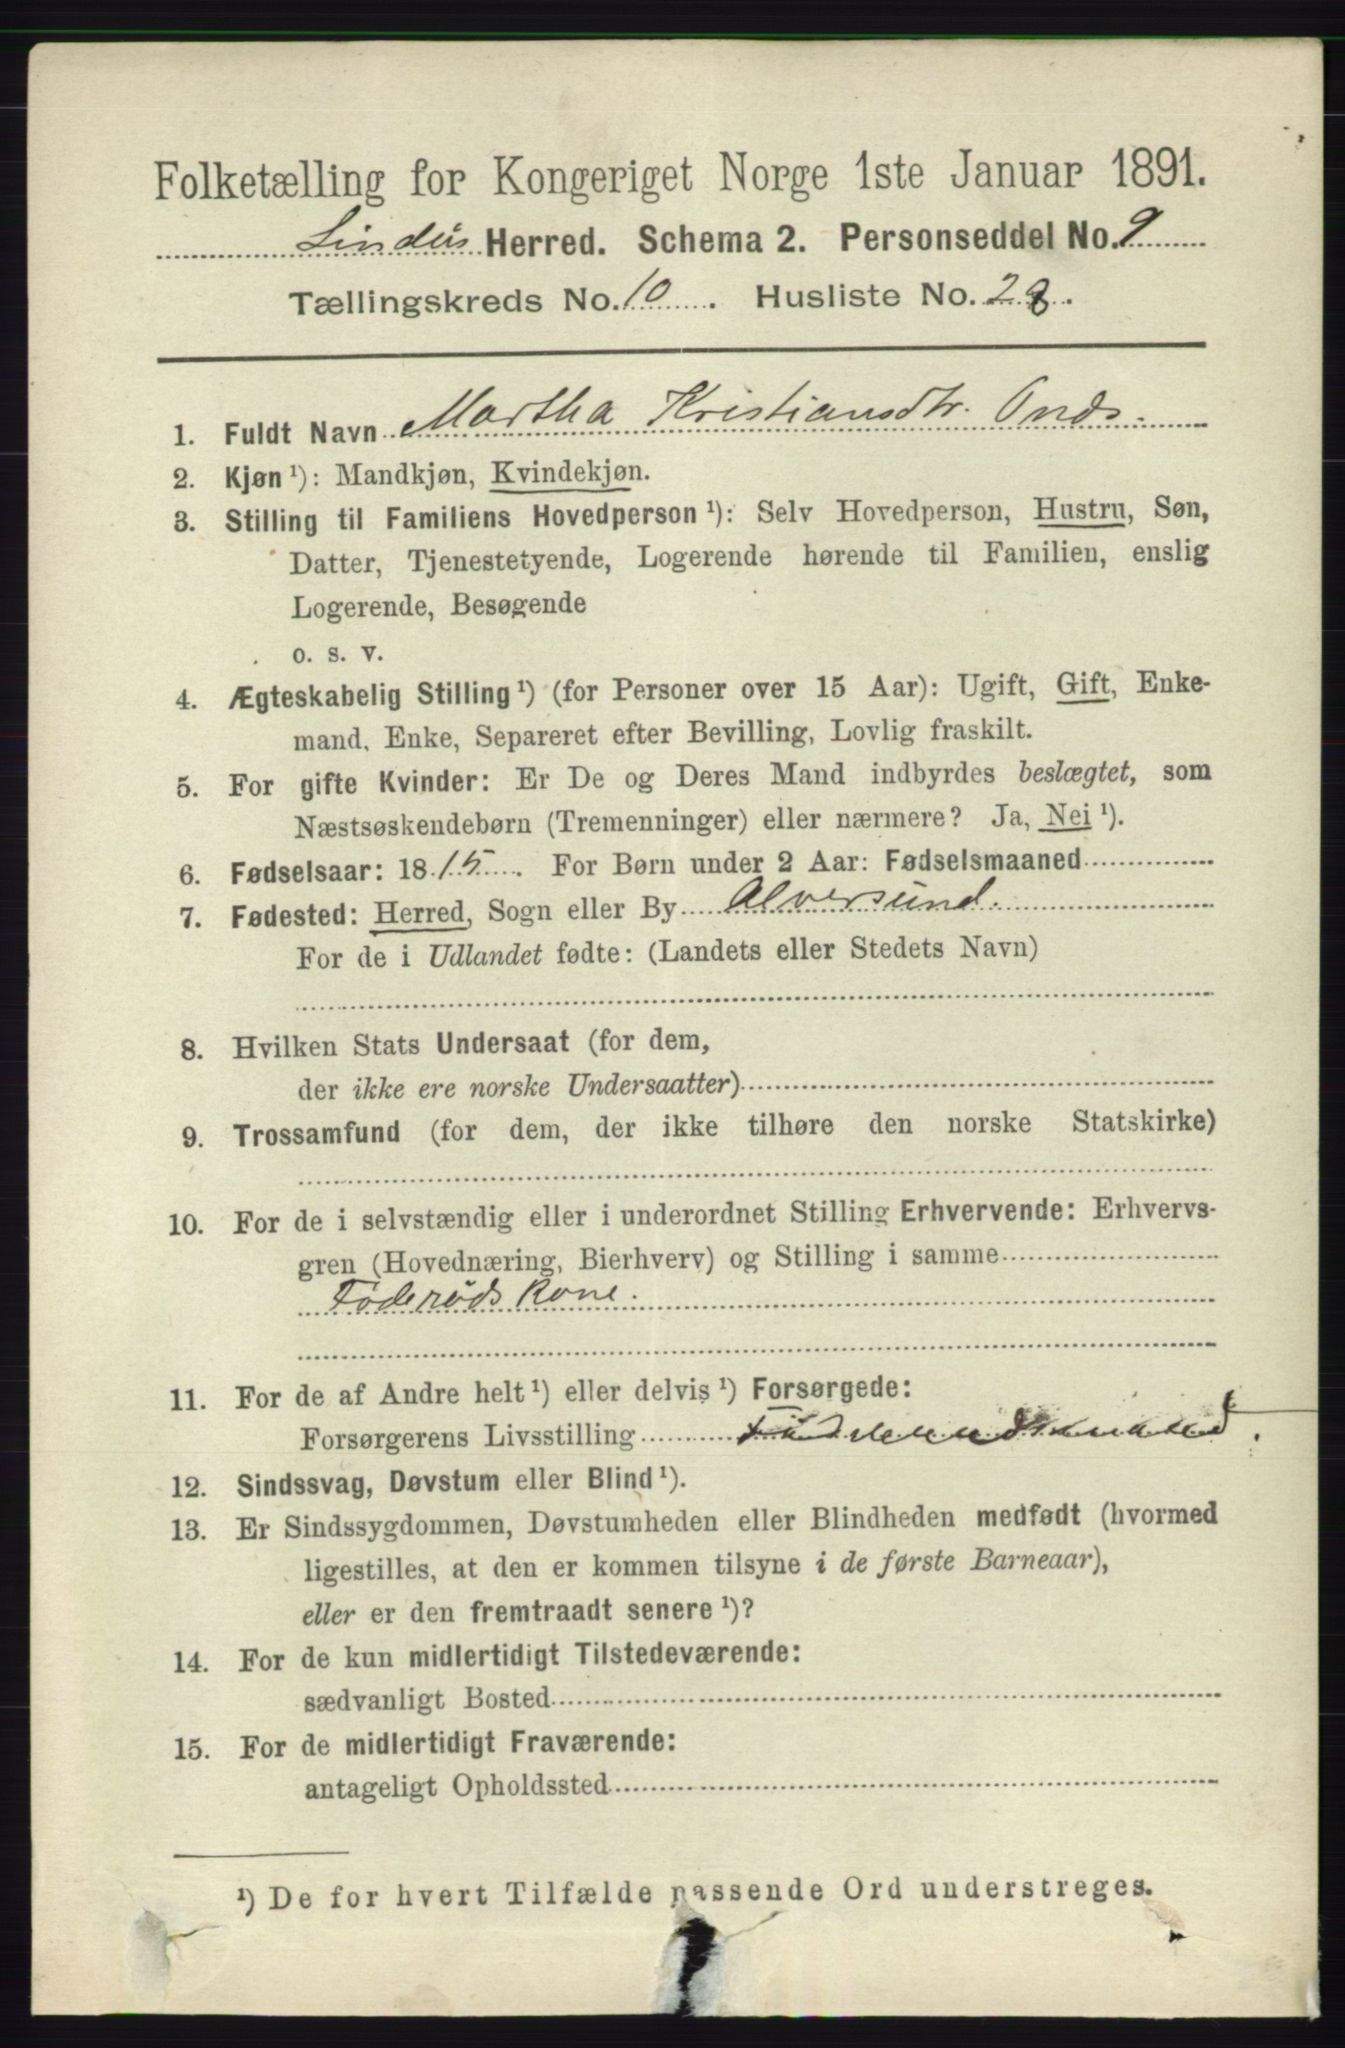 Folketælling for Kongeriget Norge 1ste Januar 1891.
Lindås Herred. Schema 2. Personseddel No. 9
Tællingskreds No. 10. Husliste No. 28.
1. Fuldt Navn Martha Kristiansdtr. Onds.
2. Kjøn ¹): Mandkjøn, Kvindekjøn.
3. Stilling til Familiens Hovedperson ¹): Selv Hovedperson, Hustru, Søn,
Datter, Tjenestetyende, Logerende hørende til Familien, enslig
Logerende, Besøgende
o. s. v.
4. Ægteskabelig Stilling ¹) (for Personer over 15 Aar): Ugift, Gift, Enke-
mand, Enke, Separeret efter Bevilling, Lovlig fraskilt.
5. For gifte Kvinder: Er De og Deres Mand indbyrdes beslægtet, som
Næstsøskendebørn (Tremenninger) eller nærmere? Ja, Nei ¹).
6. Fødselsaar: 1815. For Børn under 2 Aar: Fødselsmaaned
7. Fødested: Herred, Sogn eller By Alversund.
For de i Udlandet fødte: (Landets eller Stedets Navn)
8. Hvilken Stats Undersaat (for dem,
der ikke ere norske Undersaatter)
9. Trossamfund (for dem, der ikke tilhøre den norske Statskirke)
10. For de i selvstændig eller i underordnet Stilling Erhvervende: Erhvervs-
gren (Hovednæring, Bierhverv) og Stilling i samme
Føderåds kone.
11. For de af Andre helt ¹) eller delvis ¹) Forsørgede:
Forsørgerens Livsstilling
12. Sindssvag, Døvstum eller Blind ¹).
13. Er Sindssygdommen, Døvstumheden eller Blindheden medfødt (hvormed
ligestilles, at den er kommen tilsyne i de første Barneaar),
eller er den fremtraadt senere ¹)?
14. For de kun midlertidigt Tilstedeværende:
sædvanligt Bosted
15. For de midlertidigt Fraværende:
antageligt Opholdssted
¹) De for hvert Tilfælde passende Ord understreges.